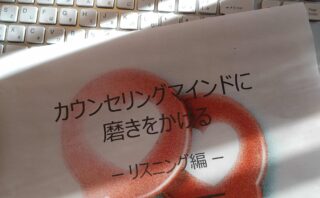 カウンセリングマインドに
磨きをかける
－リスニング編－